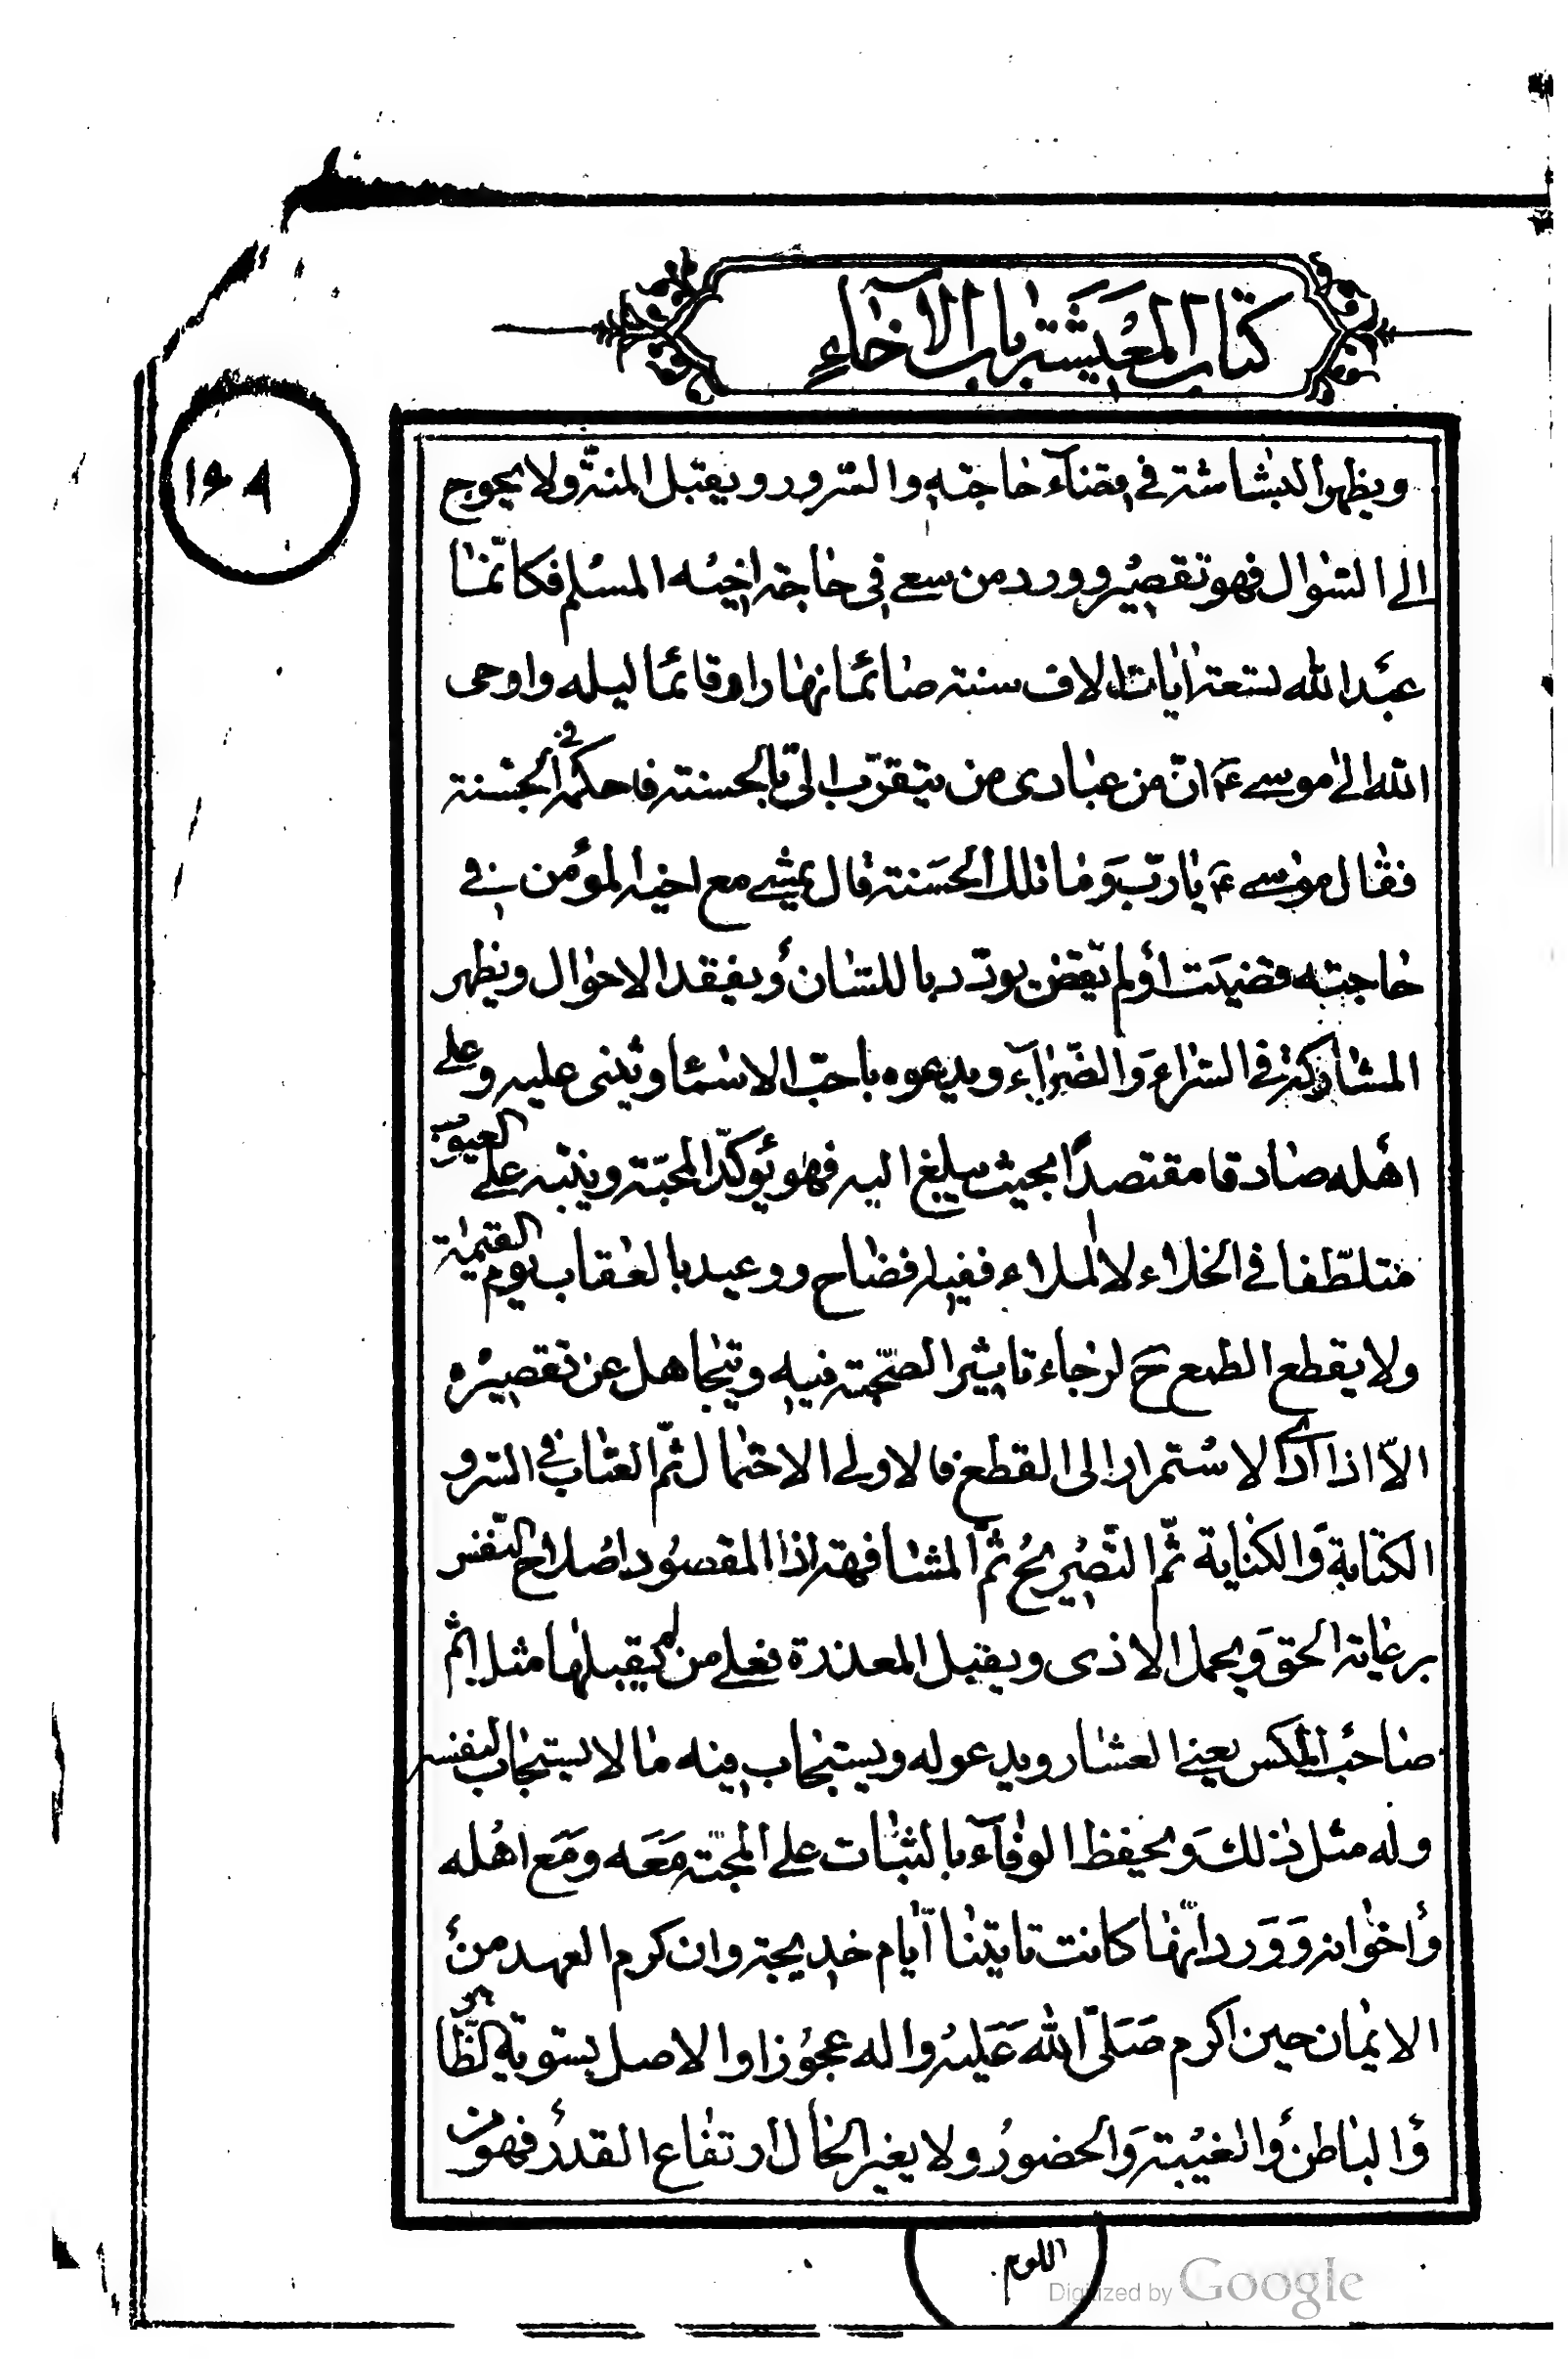 كتاب المعيشة باب الآخاء
١٤٩
ويظهر البشاشة في قضآء حاجته والسّرور ويقبل المنّة ولا يحوج
الى السّؤال فهو تقصير وورد من سعى في حاجة اخيه المسلم فكانّما
عبد الله تسعة الاف سنة صائما نهارا وقائما ليله واوحى
الله الى موسى ع انّ من عبادى من يتقرّب الىّ بالحسنة فاحكمه في الجسنة
فقال موسى ع يا ربّ وما تلك الحسنة قال يمشي مع اخيه المؤمن في
حاجته قضيت أو لم تقض يودّد باللسان ويفقد الاحوال ويظهر
المشاركة في السّراء والضّرآء ويدعوه باحبّ الاسما ويثنى عليه وعلى
اهله صادقا مقتصدًا بحيث يبلغ اليه فهو يؤكّد المحبّة وينبّه على العيوب
متلطّفا في الخلاء لا الملاء ففيه افضاح ووعيد بالعقاب يوم القيمة
ولا يقطع الطمع ح لرجاء تاثير الصّحبة فيه ويتجاهل عن تقصيره
الاّ اذا ادّى الاستمرار الى القطع فالاولى الاحتمال ثمّ العتاب في السّر و
الكتابة والكناية ثمّ التّصريح ثمّ المشافهة اذ المقصود اصلاح النّفس
برعاية الحق ويحمل الاذى ويقبل المعذرة فعلى من لم يقبلها مثل اثم
صاحب المكس يعنى العشار ويدعو له ويستجاب فيه ما لا يستجاب لنفسه
وله مثل ذلك ويحفظ الوفآء بالثبات على المحبّة معه ومع اهله
وأخوانه وورد انّها كانت تاتينا أيّام خديجة وان كرم العهد من
الايمان حين اكرم صلّى الله عليه واله عجوزا والاصل بتسوية الظّاهر
والباطن والغيبة والحضور ولا يغير الحال ارتفاع القدر فهو من
اللوم
Digitized by Google